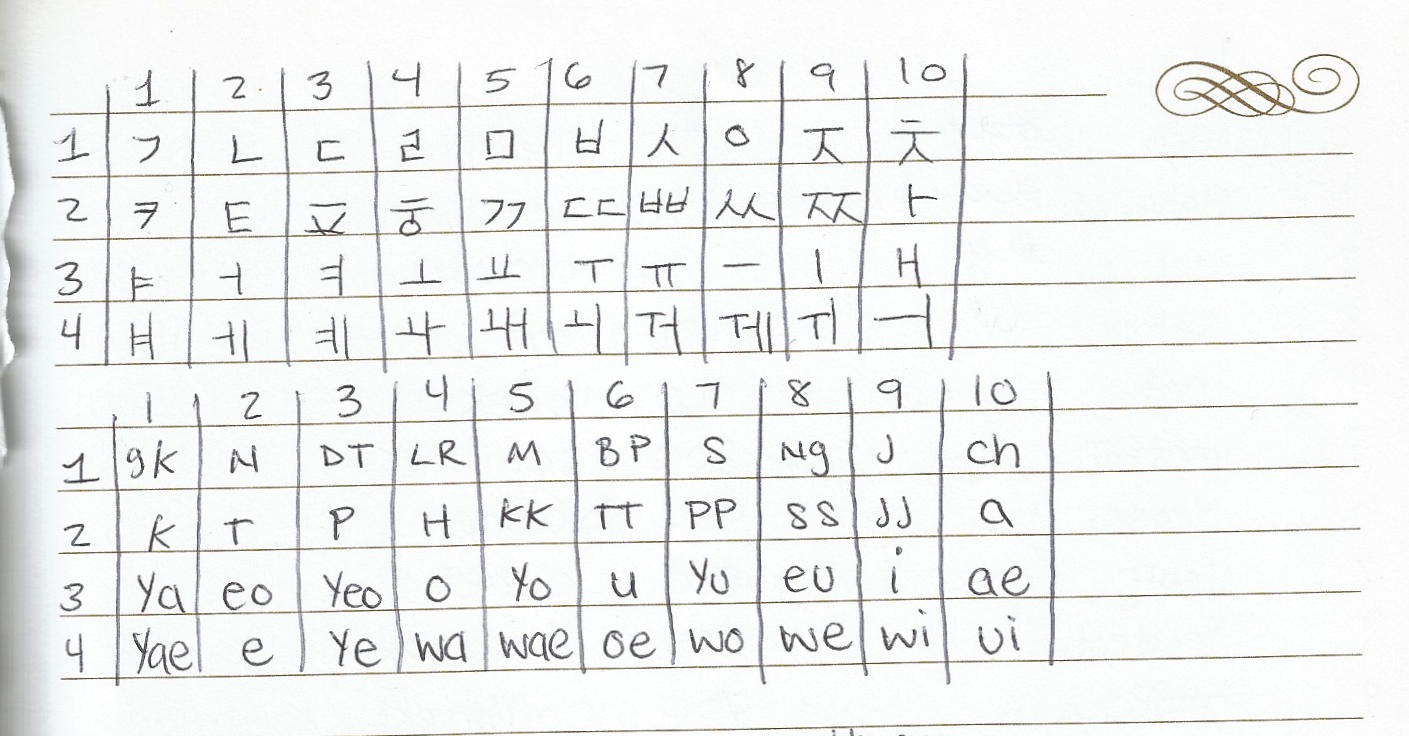 1 2 3 4 5 6 7 8 9 10
1 ㄱ ㄴ ㄷ ㄹ ㅁ ㅂ ㅅ ㅇ ㅈ ㅊ
2 ㅋ ㅌ ㅍ ㅎ ㄲ ㄸ ㅃ ㅆ ㅉ ㅏ
3 ㅑ ㅓ ㅕ ㅗ ㅛ ㅜ ㅠ ㅡ ㅣ ㅐ
4 ㅒ ㅔ ㅖ ㅘ ㅙ ㅚ ㅝ ㅞ ㅟ ㅢ
1 2 3 4 5 6 7 8 9 10
1 gK N DT LR M BP S Ng J ch
2 K T P H KK TT PP SS JJ a
3 Ya eo Yeo o Yo u Yu eu i ae
4 Yae e Ye wa wae oe wo we wi ui